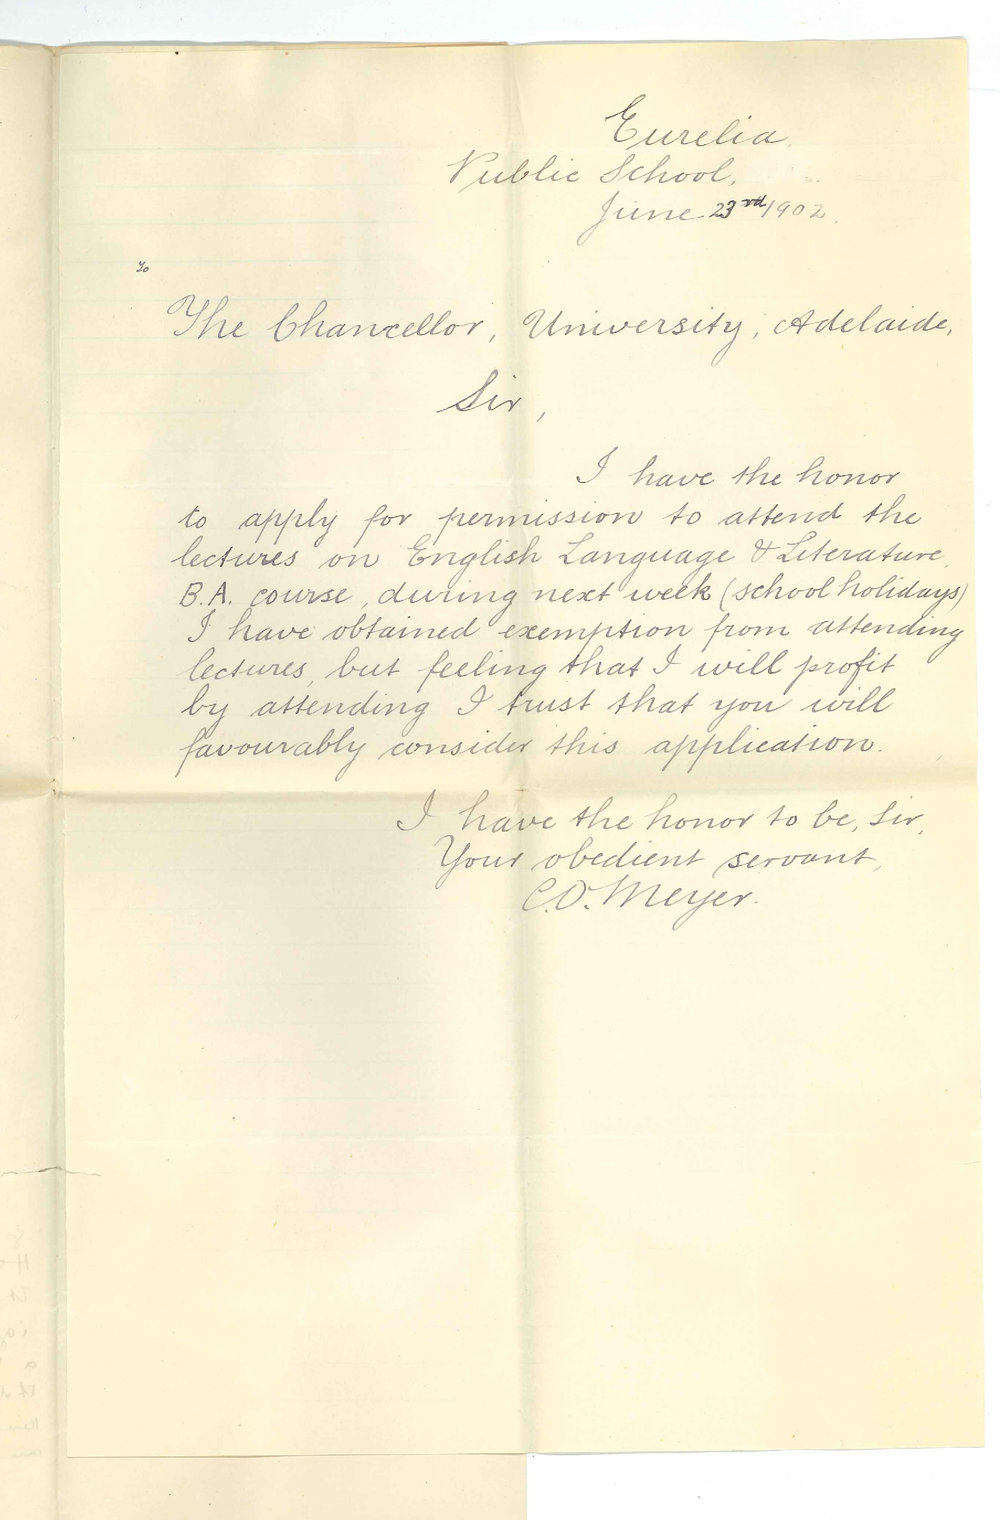 Eurelia
Public School,
June 23rd/1902.
To
The Chancellor, University, Adelaide,
Sir,
I have the honor
to apply for permission to attend the
lectures on English Language & Literature,
B.A. course, during next week (school holidays)
I have obtained exemption from attending
lectures, but feeling that I will profit
by attending I trust that you will
favourably consider this application.
I have the honor to be, Sir,
Your obedient servant,
C.O. Meyer.